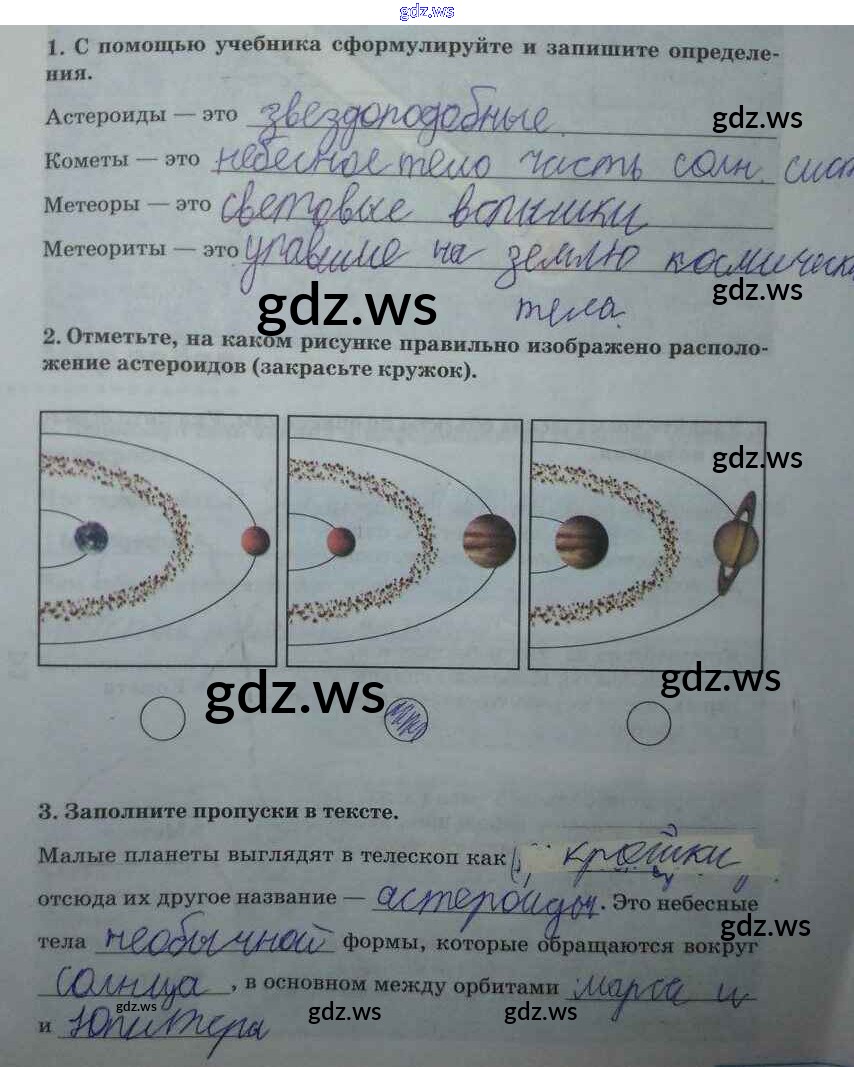 gdz.ws
1. С помощью учебника сформулируйте и запишите определе-
ния.
Астероиды — это звездоподобные. gdz.ws
Кометы — это небесное тело часть солн. сист
Метеоры — это световые вспышки
Метеориты — это упавшие на землю космически
gdz.ws gdz.ws
тела.
2. Отметьте, на каком рисунке правильно изображено располо-
жение астероидов (закрасьте кружок).
gdz.ws
gdz.ws gdz.ws
3. Заполните пропуски в тексте.
Малые планеты выглядят в телескоп как крошки
отсюда их другое название — астероиды. Это небесные
gdz.ws
тела необычной формы, которые обращаются вокруг
солнца, в основном между орбитами марса и
gdz.ws gdz.ws gdz.ws
и Юпитера